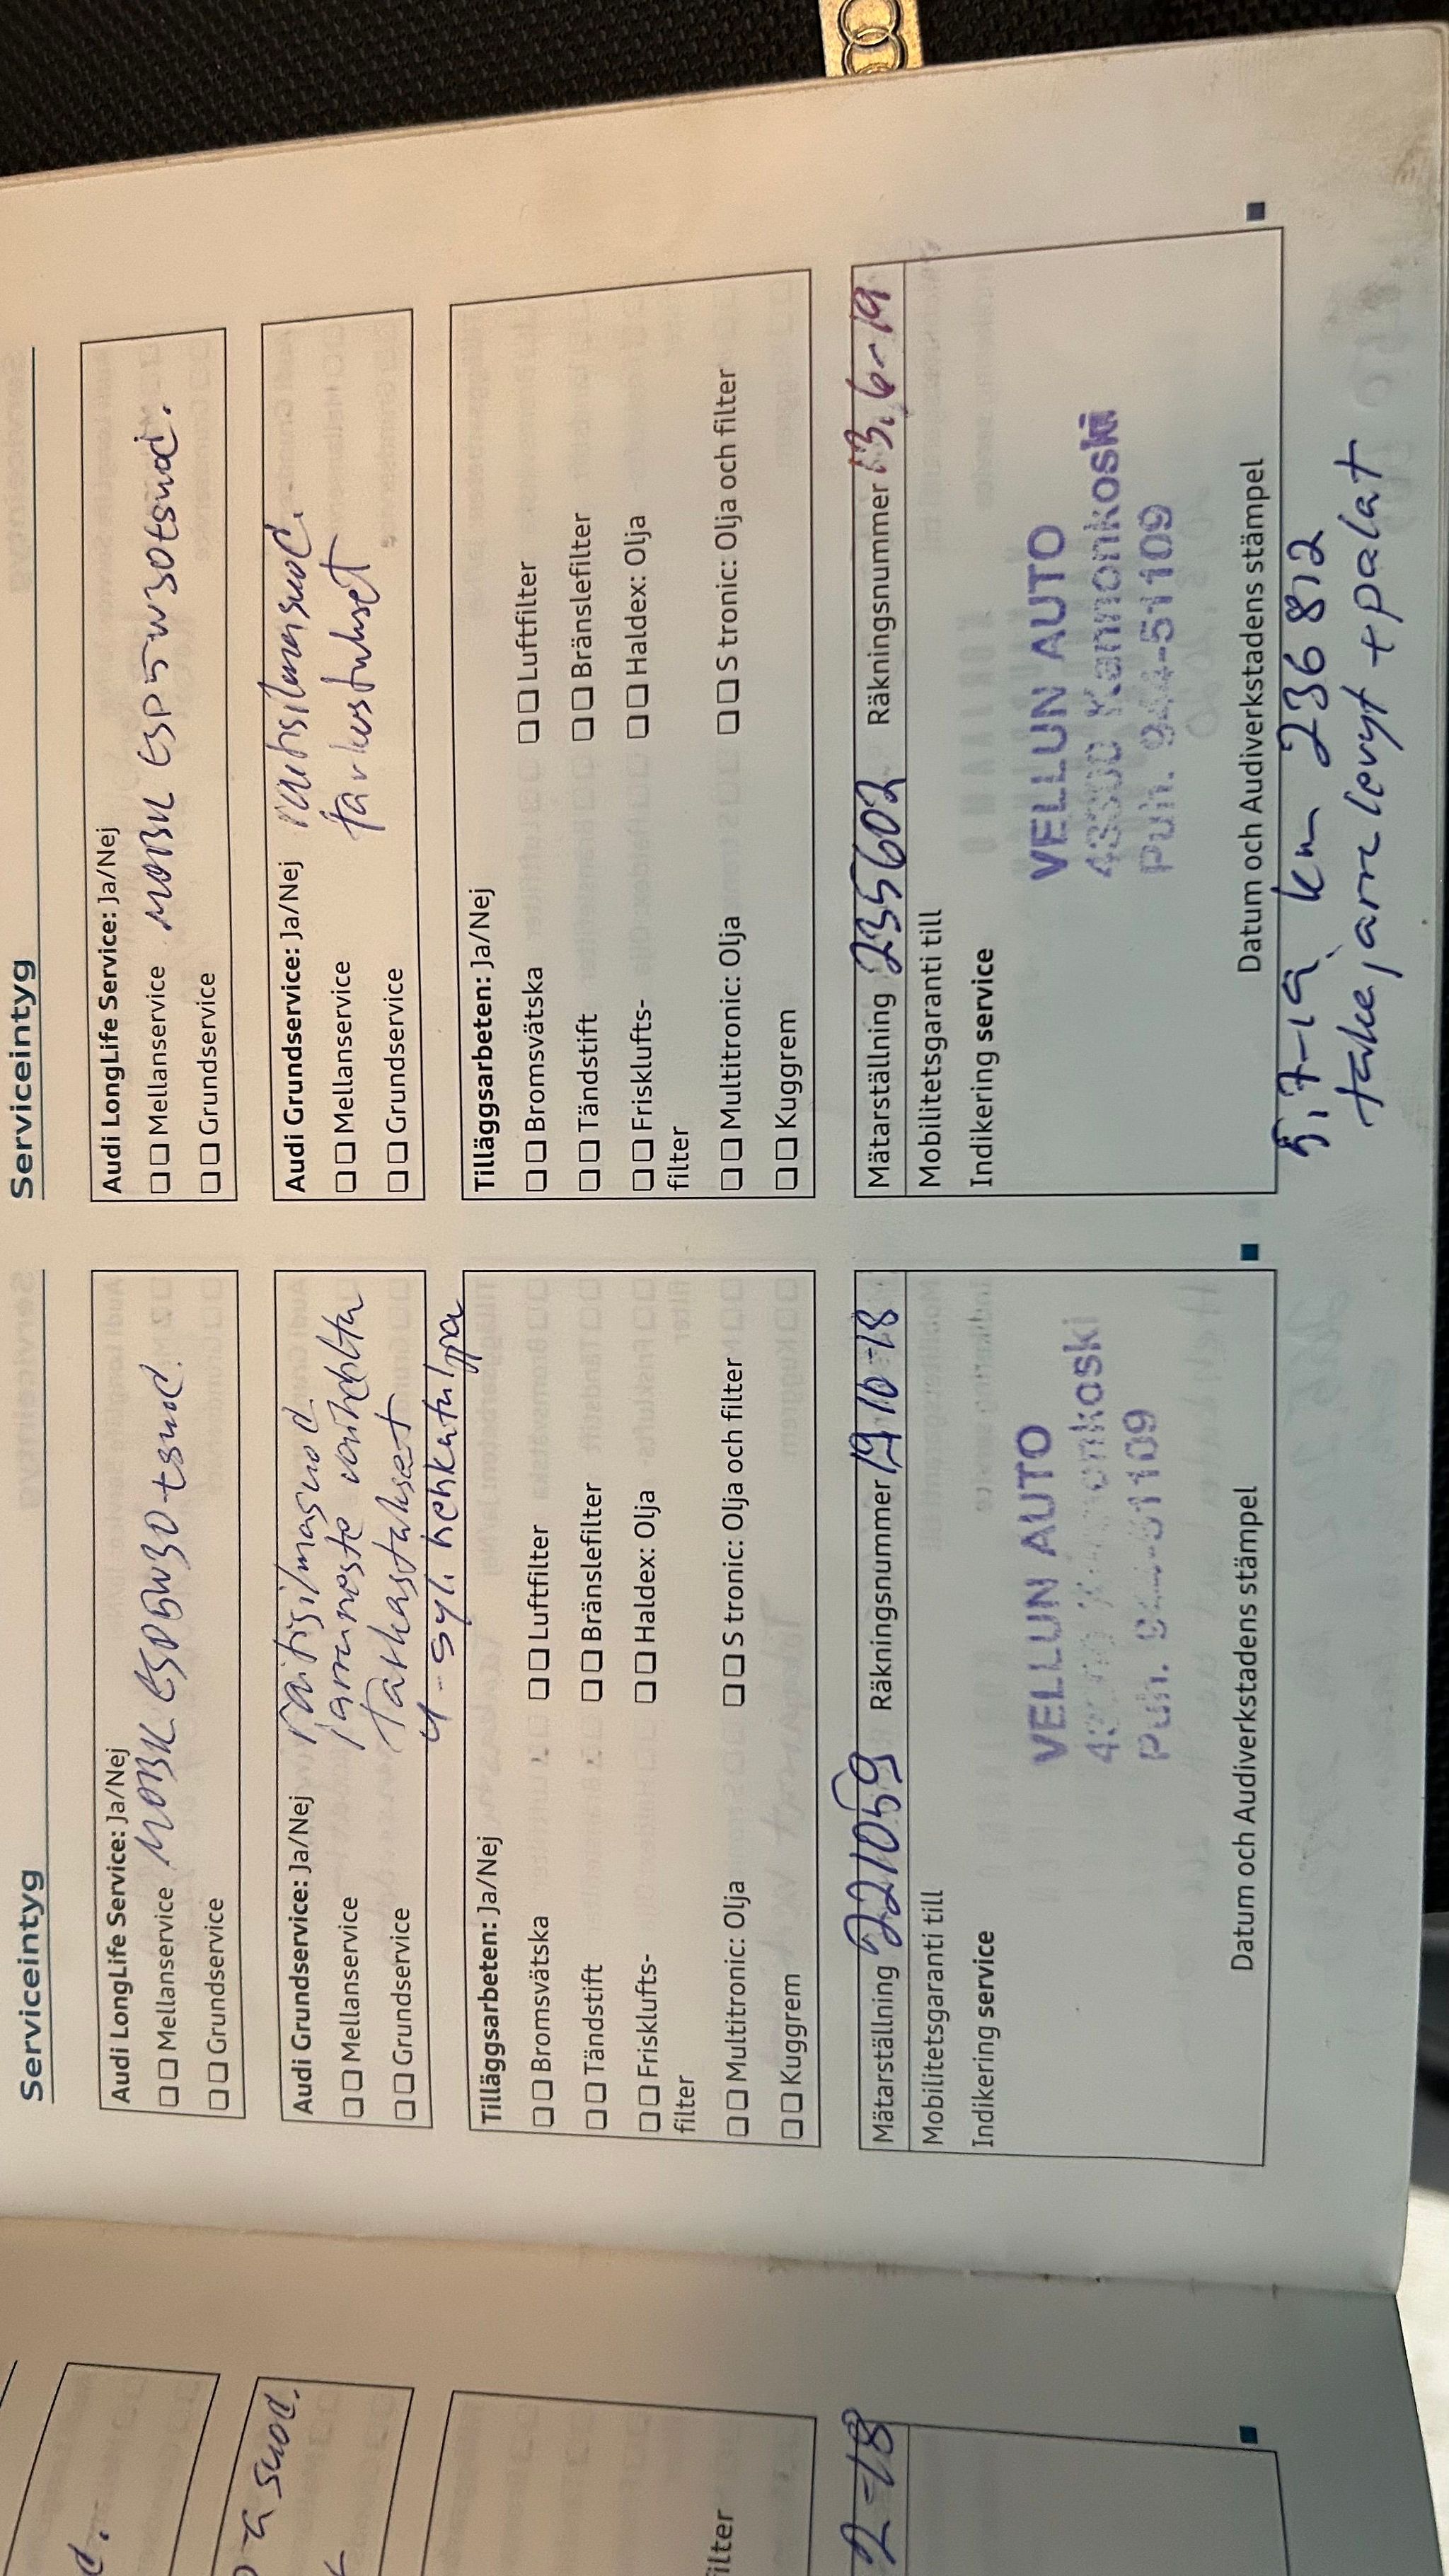 d.
a suod.
filter
2-18
Serviceintyg
Audi LongLife Service: Ja/Nej
Mellanservice MOBIL ESP5W30+suod.
Grundservice
Audi Grundservice: Ja/Nej raitisilmasuod.
Mellanservice jarruneste vaihdettu
Grundservice Tarkastukset
4-syl. hehkutulppa
Tilläggsarbeten: Ja/Nej
Bromsvätska Luftfilter
Tändstift Bränslefilter
Frisklufts- Haldex: Olja
filter
Multitronic: Olja S tronic: Olja och filter
Kuggrem
Mätarställning 221059 Räkningsnummer 19.10-18
Mobilitetsgaranti till
Indikering service
VELLUN AUTO
Puh.
Datum och Audiverkstadens stämpel
Serviceintyg
Audi LongLife Service: Ja/Nej
Mellanservice MOBIL ESP5W30+suod.
Grundservice
Audi Grundservice: Ja/Nej raitisilmasuod.
Mellanservice tarkastukset
Grundservice
Tilläggsarbeten: Ja/Nej
Bromsvätska Luftfilter
Tändstift Bränslefilter
Frisklufts- Haldex: Olja
filter
Multitronic: Olja S tronic: Olja och filter
Kuggrem
Mätarställning 235602 Räkningsnummer 13.6-19
Mobilitetsgaranti till
Indikering service
VELLUN AUTO
43300 Kannonkoski
Puh. 944-51109
Datum och Audiverkstadens stämpel
5.7-19 km 236812
takajarrulevyt + palat